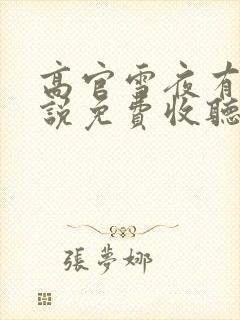 高官雪夜有
説免費收聽
張夢娜